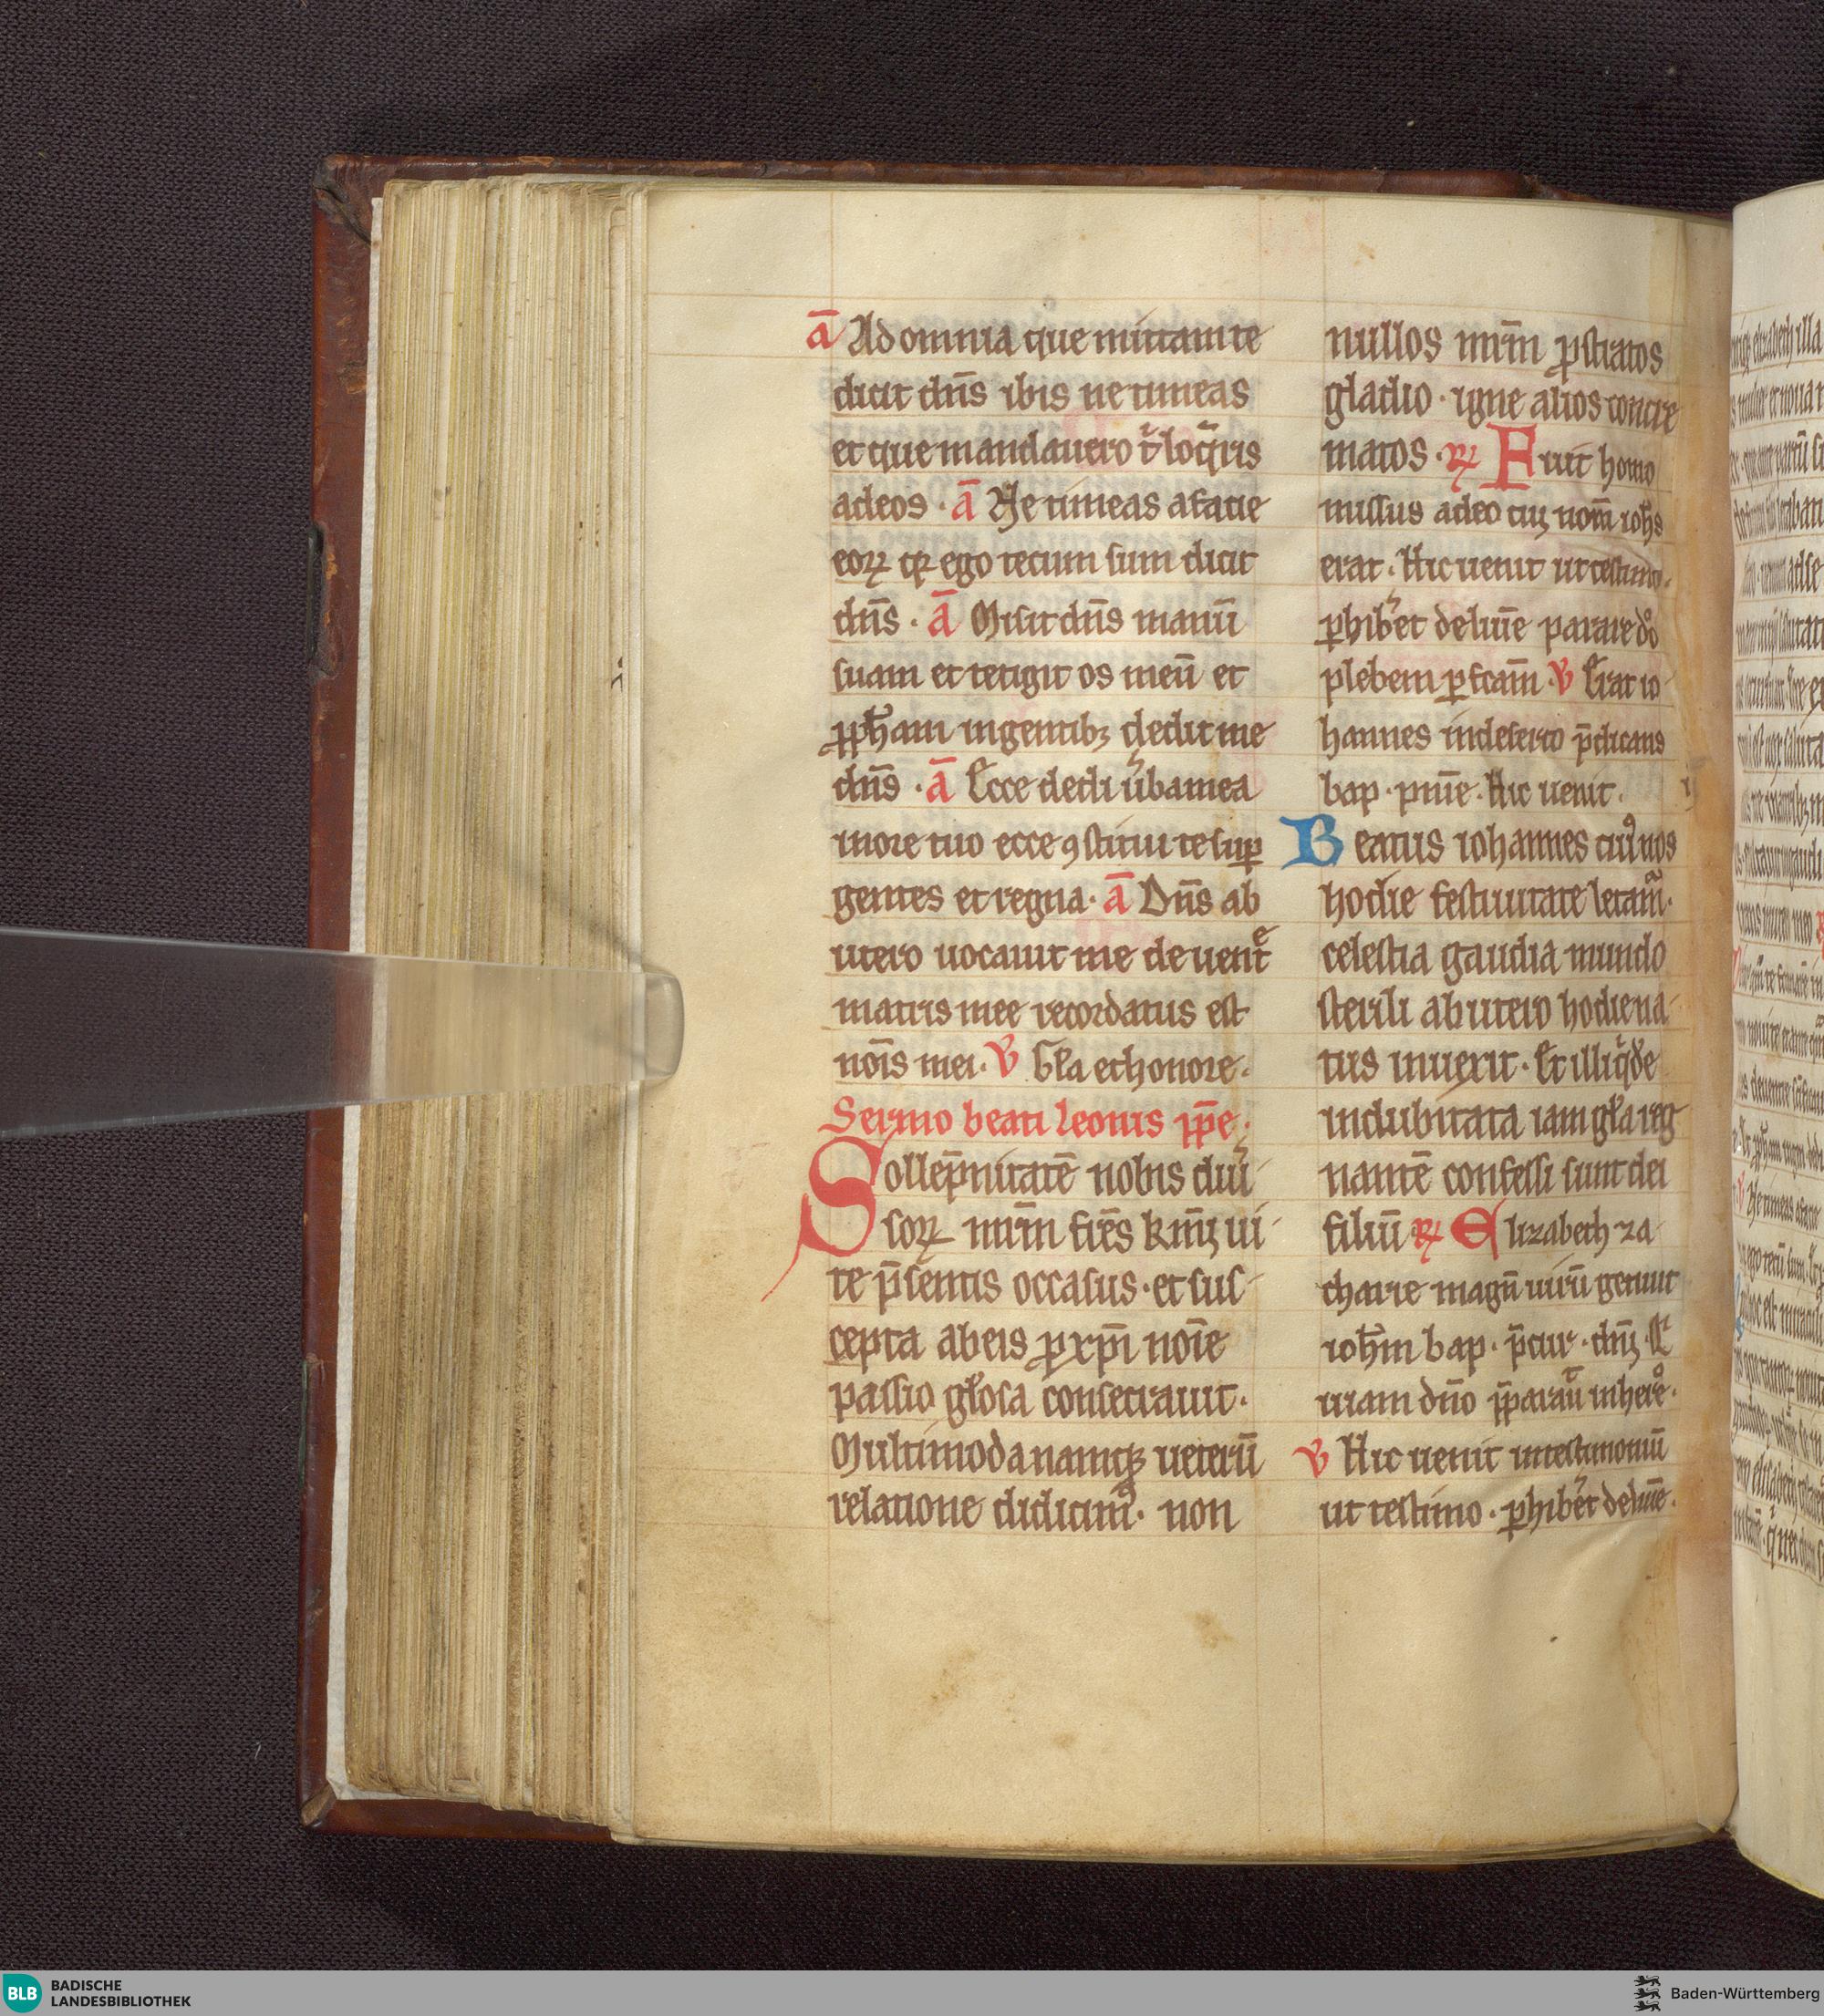 a̅ Ad omnia que mittam te
dicit dn̅s ibis ne timeas
et que mandauero t̉ loq̅ris
ad eos · a̅ Ne timeas a facie
eoꝝ qꝛ ego tecum sum dicit
dn̅s · a̅ Misit dn̅s manu̅
suam et tetigit os meu̅ et
ꝓph̅am in gentibꝫ dedit me
dn̅s · a̅ Ecce dedi u̓ba mea
in ore tuo ecce ꝯstitui te suꝑ
gentes et regna · a̅ Dn̅s ab
utero uocauit me de uentͤ
matris mee recordatus est
no̅is mei · V Gl̅a et honore ·
Sermo beati leonis pp̅e ·
Sollep̅nitate̅ nobis diu̓
soꝝ mr̅m fr̅es kmīꝫ ui
te p̅sentis occasus · et sus
cepta ab eis ꝑ xp̅i no̅ie
passio gl̅osa consecrauit ·
Multimoda namqꝫ ueteru̅
relatione didicimꝰ · non
nullos mr̅m ꝓstratos
gladio · igne alios concre
matos · ℟ Fuit homo
missus a deo cuiꝫ nom̅ ioh̅s
erat · Hic uenit ut testimo ·
ꝑhib̓et de lum̅e parare dͦo
plebem ꝑfcam̅ · V Erat io
hannes in deserto p̅dicans
bap · pnīe · Hic uenit ·
Beatus iohannes cuiꝰ nos
hodie festiuitate letam̃ ·
celestia gaudia mundo
sterili ab utero hodie na
tus inuexit · Et illi qͥde
indubitata iam gl̅a reg
nante̅ confessi sunt dei
filiu̅ ℟ Elizabeth za
charie magnu̅ uiru̅ genuit
ioh̅m bap · p̅cur · dn̅ꝫ · Q̓
uiam dn̅o pp̅arau̅ in hereͦ ·
V Hic uenit in testimoniu̅
ut testimo · ꝑhib̓et de lum̅e ·
BLB BADISCHE
LANDESBIBLIOTHEK
Baden-Württemberg